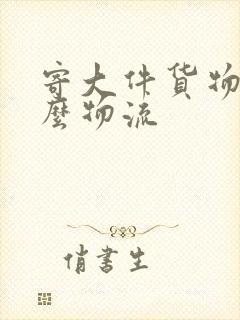 寄大件货物
麼物流
俏書生